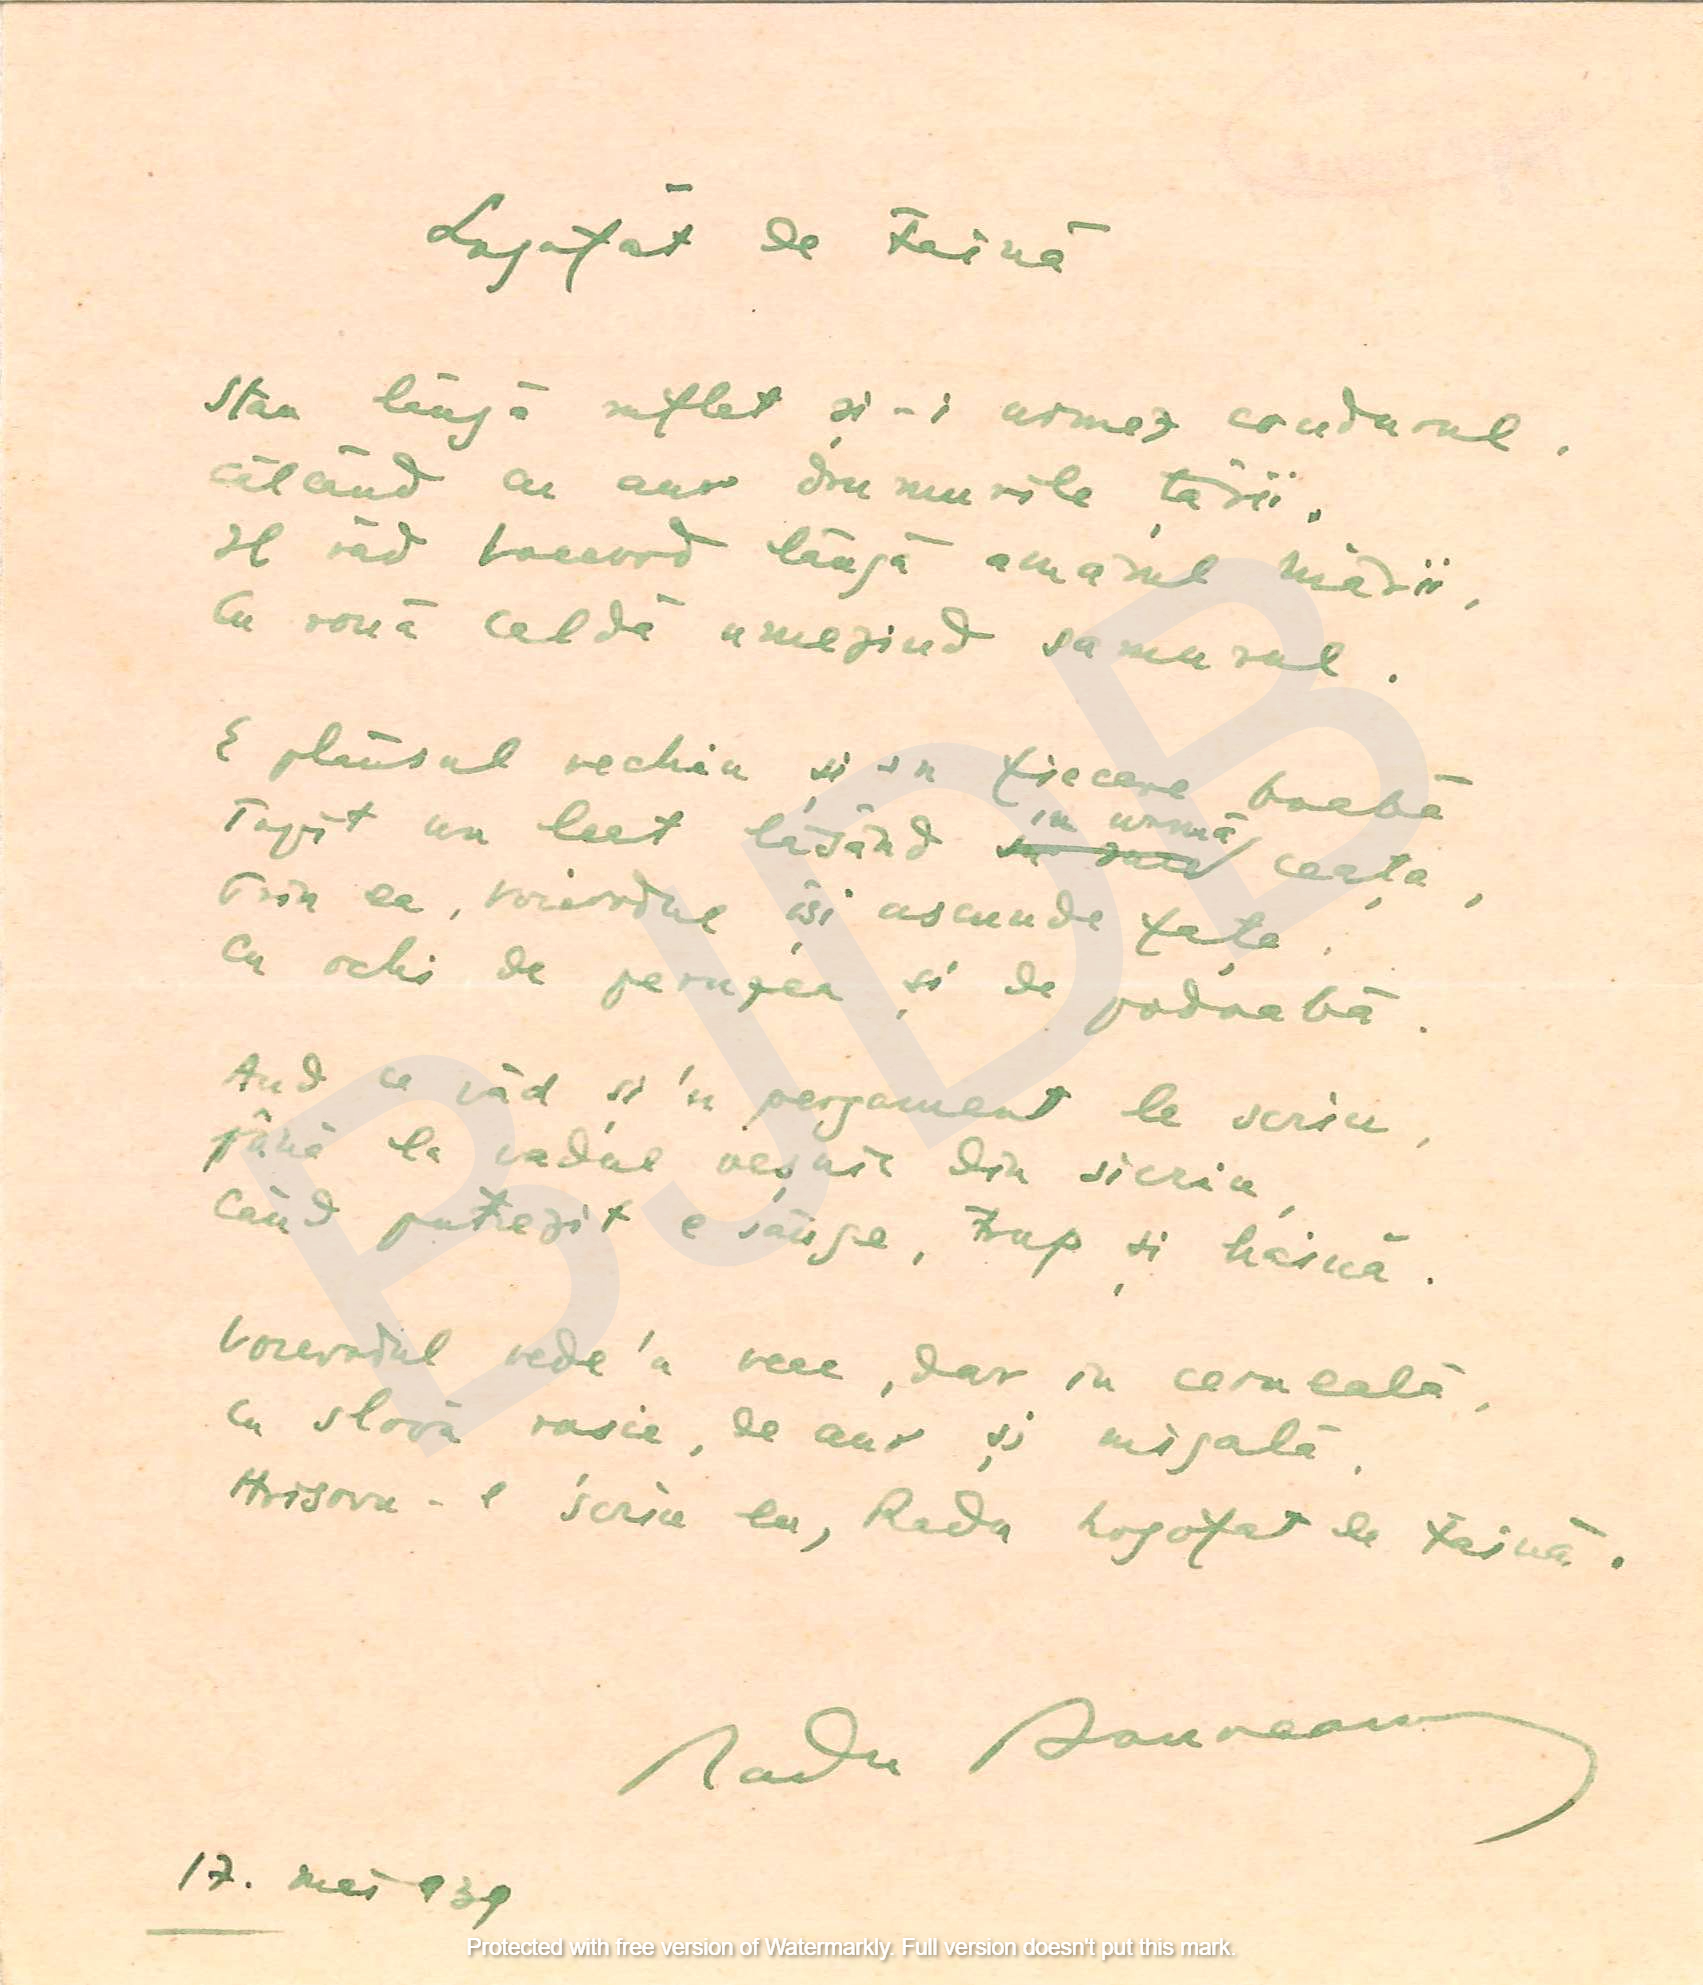 Logofăt de taină
Stau lângă suflet și-i urmez condurul,
călcând cu aur drumurile țării.
Il văd voevod lângă amarul mării,
Cu rouă caldă umezind samurul.
E plânsul vechiu și-n fiecare boabă
Topit un leat lăsând în urmă ceața,
Prin ea, voievodul își ascunde fața.
Cu ochi de peruzea și de podoabă.
Aud ce văd și'n pergament le scriu,
până la vadul veșnic din sicriu,
Când putrezit e sânge, trup și haină.
Voievodul vede'n veac, dar in cerneală,
Cu slovă rosie, de aur și migală.
Hrisovu-l scriu eu, Radu Logofat de taină.
Radu
17. mai 939
BJDB
Protected with free version of Watermarkly. Full version doesn't put this mark.